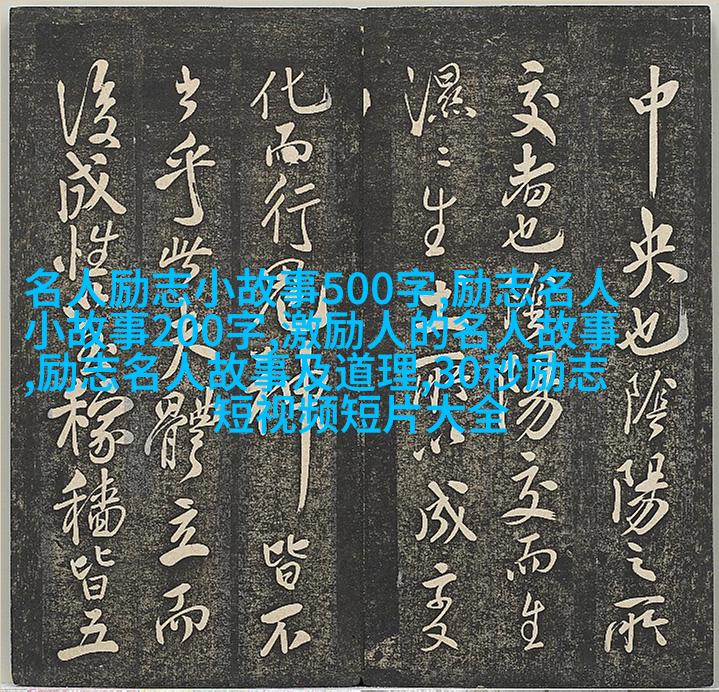 中央也陰陽之所
交者也陰陽交而生
濕〻生成变
化而行鬼神皆不
出乎此大體立而
後成性稼穡皆五
名人励志小故事500字,励志名人
小故事200字,激励人的名人故事
,励志名人故事及道理,30秒励志
短视频短片大全